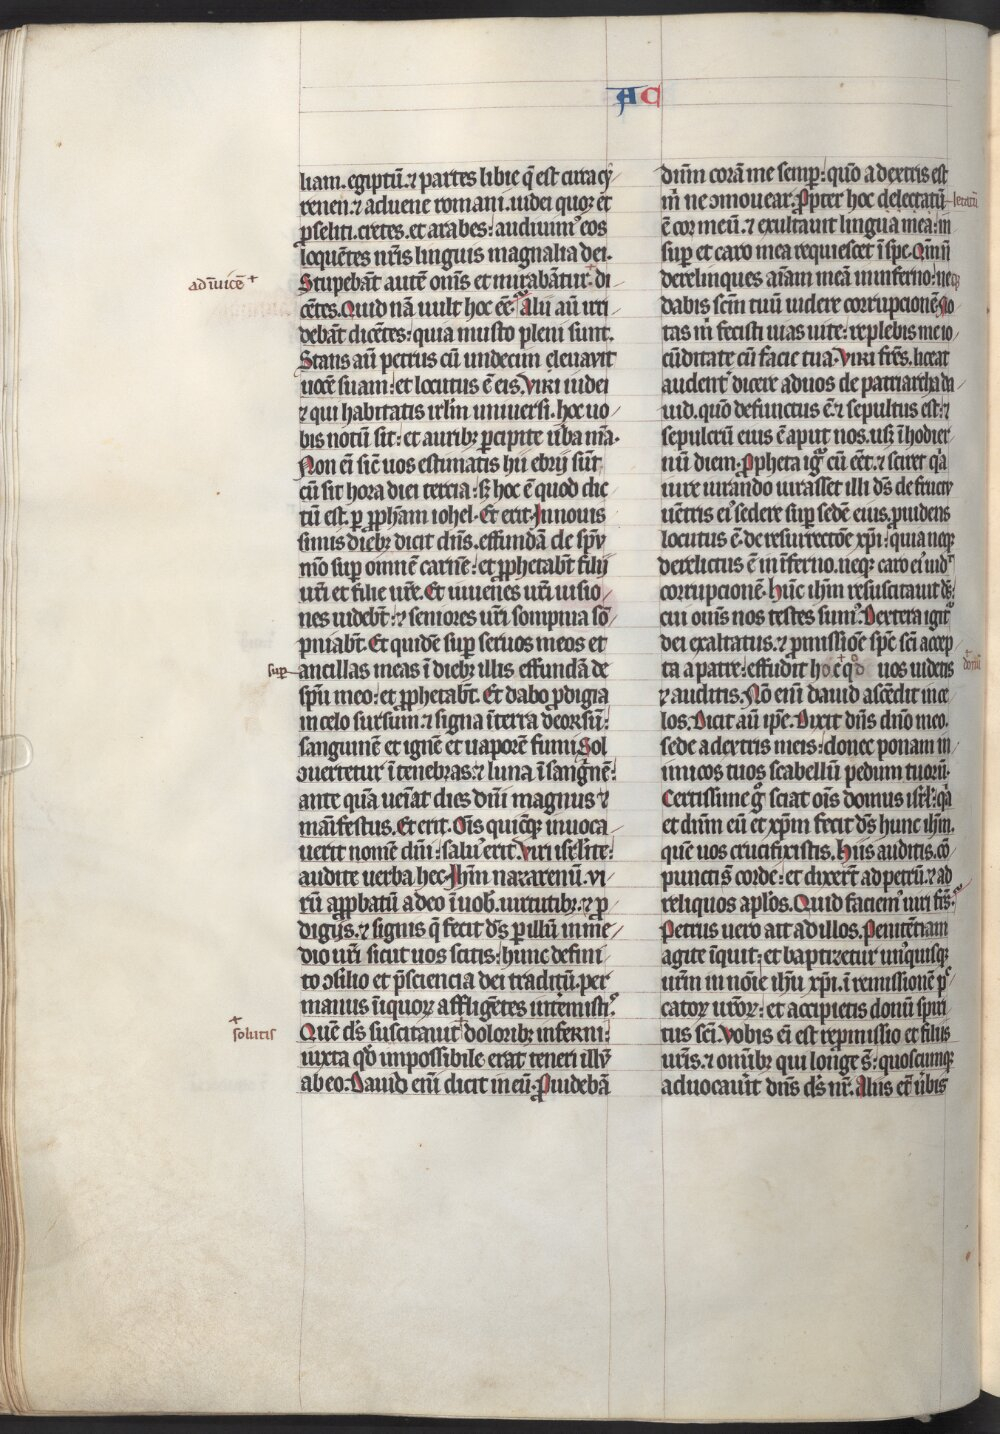 AC
liam. egiptū. ⁊ partes libie q̄ est circa cy
renen. ⁊ aduene romani. iudei quoꝫ et
ꝓseliti. cretes. et arabes: audiuim᾽ eos
loquētes nr̄is linguis magnalia dei.
ad īuicē +
Stupebāt autē om̄s et mirabāntur: di
cētes. Quid nā uult hoc eē. Alii aū irri
debāt dicētes: quia musto pleni sunt.
Stans aū petrus cū undecim eleuauit
uocē suam: et locutus ē eis. Viri iudei
⁊ qui habitatis irl̄m uniuersi. hoc uo
bis notū sit: et auribꝫ ꝑcipite ūba m̄a.
Non eī sic̄ uos estimatis hii ebrij sūt
cū sit hora diei tercia: sꝫ hoc ē quod dic
tū est. ꝑ ꝓph̄am iohel. Et erit. In nouis
simis diebꝫ dicit dn̄s. effundā de sp̄u
m̄o suꝑ omnē carnē: et ꝓphetabt̄ filij
ur̄i et filie ur̄e. Et iuuenes ur̄i uisio
nes uidebt̄: ⁊ seniores ur̄i sompnia sō
pniabt̄. Et quidē suꝑ seruos meos et
suꝑ
ancillas meas ī diebꝫ illis effundā de
sp̄u meo: et ꝓphetabt̄. Et dabo ꝓdigia
in celo sursum: ⁊ signa ī terra deorsū:
sanguinē et ignē et uaporē fumi. Sol
ↄuertetur ī tenebras: ⁊ luna ī sangⁱnē:
ante quā ueīat dies dn̄i magnus ⁊
māifestus. Et erit. Oīs quicūqꝫ inuoca
uerit nomē dn̄i: salu᾽ erit. Viri isrl̄ite:
audite uerba hec. Ih̄m nazarenū. vi
rū aꝓbatū a deo ī uob̄. uirtutibꝫ: ⁊ ꝓ
digijs. ⁊ signis q̄ fecit d̄s ꝑ illū in me
dio ur̄i sicut uos scitis: hunc defini
to ↄsilio et p̄sciencia dei traditū. per
manus īiquoꝝ affligētes int̄emistis.
+
solutis
Quē d̄s suscitauit + doloribꝫ inferni:
iuxta qd̄ impossibile erat teneri illū
ab eo. Dauid enī dicit in eū. Prouidebā
dn̄m corā me semꝑ: quō a dextris est
m̄ ne ↄmouear. Propter hoc delectatū
letatū
ē cor meū. ⁊ exultauit lingua mea: in
suꝑ et caro mea requiescet ī spe. Qm̄ nō
derelinques aīam meā in inferno: neqꝫ
dabis sc̄m tuū uidere corrupcionē. No
tas m̄ fecisti uias uite: replebis me io
cūditate cū facie tua. Viri fr̄es. liceat
audent̄ dicere ad uos de patriarcha da
uid. quō defunctus ē ⁊ sepultus est: ⁊
sepulcrū eius ē aput nos. usꝫ ī hodier
nū diem. Propheta igr̄ cū eēt. ⁊ sciret qa
iure iurando iurasset illi d̄s de fructu
uētris ei᾽ sedere suꝑ sedē eius. ꝓuidens
locutus ē de resurrectōe xp̄i: quia neqꝫ
derelictus ē in īferno. neqꝫ caro ei᾽ uidᵗ
corrupcionē. Hūc ih̄m resuscitauit d̄s:
cui om̄s nos testes sum᾽. Dextera igit᷑
dei exaltatus. ⁊ ꝓmissiōe sp̄c sc̄i accep
ta a patre: effudit hoc + qd̄ uos uidens
+
donū
⁊ auditis. Nō enī dauid ascēdit in ce
los. Dicit aū ip̄e. Dixit dn̄s dn̄o meo.
sede a dextris meis: donec ponam in
imicos tuos scabellū pedum tuorū.
Certissime g̊ sciat oīs domus isrl̄: qa
et dn̄m eū et xp̄m fecit d̄s hunc ih̄m.
quē uos crucifixistis. Hiis auditis. cō
puncti s̄ corde: et dixert̄ ad petrū. ⁊ ad
reliquos apl̄os. Quid faciem᾽ uiri fr̄s.
Petrus uero ait ad illos. Penitētiam
agite īquit: et baptizetur un᾽quisqꝫ
ur̄m in noīe ih̄u xp̄i. ī remissionē pᶜ
catoꝝ ur̄oꝝ: et accipietis donū spiri
tus sc̄i. Vobis eī est repmissio et filiis
ur̄is. ⁊ om̄ibꝫ qui longe s̄: quoscumqꝫ
aduocauit dn̄s d̄s nr̄. Aliis et̄ ūbis